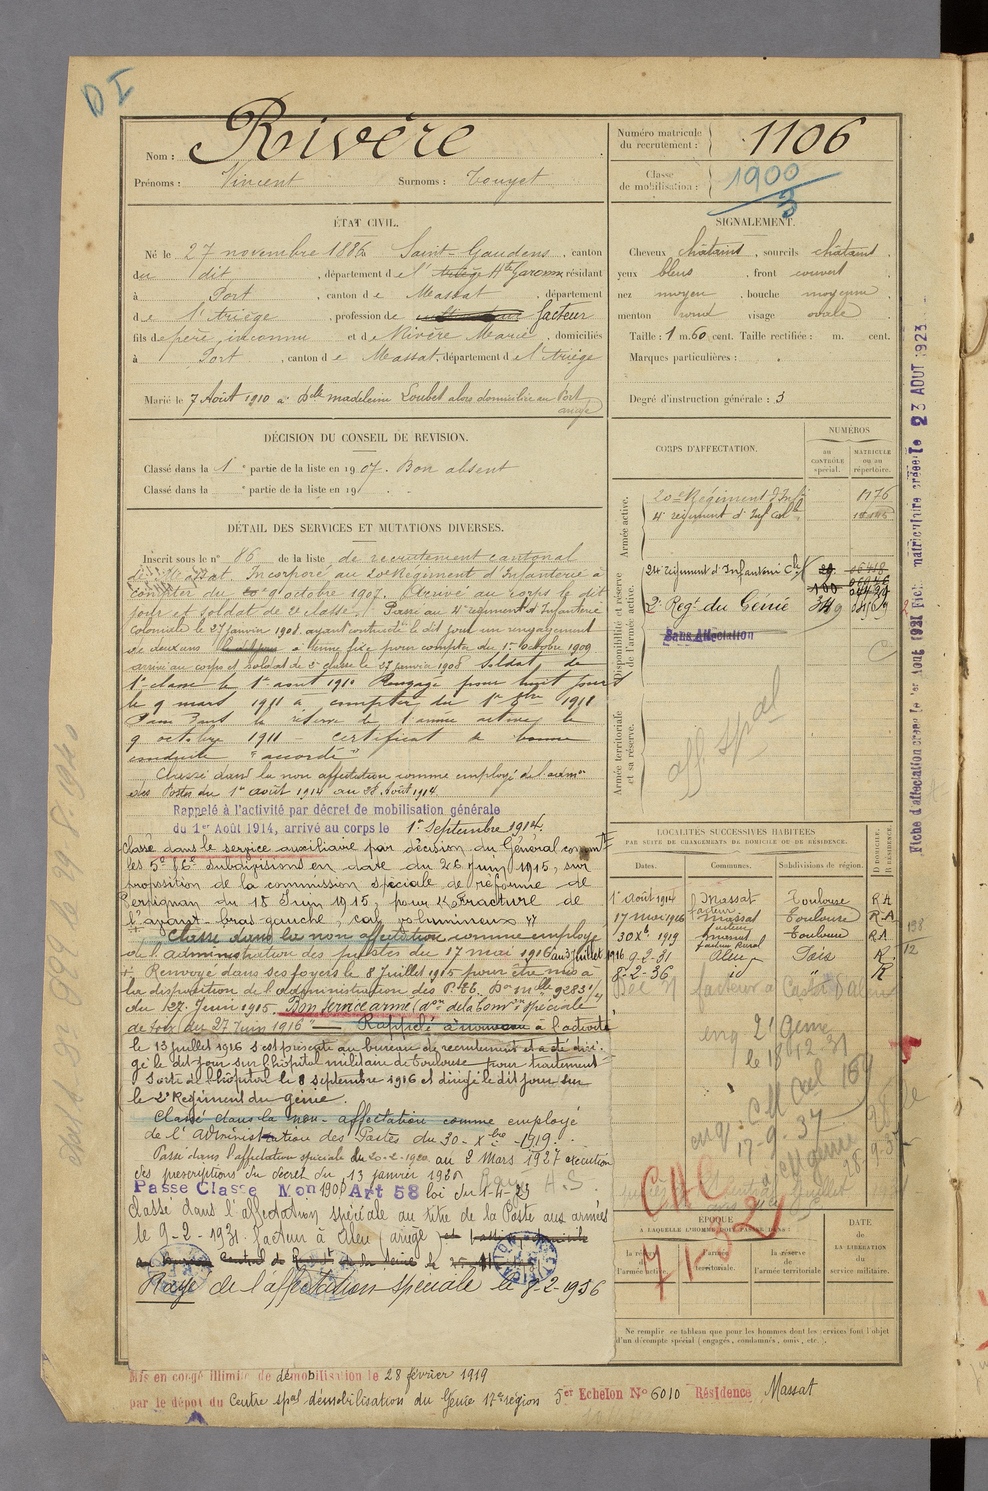 D I
Nom : Rivère
Prénoms : Vincent Surnoms : Touyet
Numéro matricule du recrutement : 1106
Classe de mobilisation : 1900/3
ÉTAT CIVIL.
Né le 27 novembre 1886 Saint-Gaudens, canton
du dit, département de l'Ariège Hte Garonne résidant
à Port, canton de Massat, département
de l'Ariège, profession de facteur
fils de père inconnu et de Rivère Marie, domiciliés
à Port, canton de Massat, département de l'Ariège
Marié le 7 Août 1910 à Delle Madeleine Loubet alors domiciliée au Port
ariège
SIGNALEMENT.
Cheveux châtains, sourcils châtains,
yeux bleus, front couvert,
nez moyen, bouche moyenne,
menton rond visage ovale
Taille : 1 m. 60 cent. Taille rectifiée : m. cent.
Marques particulières :
Degré d'instruction générale : 3
DÉCISION DU CONSEIL DE REVISION.
Classé dans la 1e partie de la liste en 1907. Bon absent
Classé dans la e partie de la liste en 19
CORPS D'AFFECTATION.
NUMÉROS
AU CONTRÔLE spécial.
MATRICULE OU AU répertoire.
Armée active.
20e Régiment d'Infie 1176
4e régiment d'Inf Colle
Disponibilité et réserve de l'armée active.
24e régiment d'Infanterie Cle
2e Regt du Génie
Sans Affectation
Armée territoriale et sa réserve.
aff. spal
DÉTAIL DES SERVICES ET MUTATIONS DIVERSES.
Inscrit sous le n° 86 de la liste de recrutement cantonal
de Massat. Incorporé au 20e Régiment d'Infanterie à
compter du 9 octobre 1907. Arrivé au corps le dit
jour et soldat de 2e classe. Passé au 4e régiment d'Infanterie
coloniale le 27 janvier 1908 ayant contracté le dit jour un engagement
de deux ans à terme fixe pour compter du 1er octobre 1909
arrivé au corps et soldat de 2e classe le 27 janvier 1908 Soldat de
1e classe le 1er aout 1910 Rengagé pour huit jours
le 9 mars 1911 à compter du 1er 8bre 1911
Passé dans la réserve de l'armée active le
9 octobre 1911 – certificat de bonne
conduite "accordé"
Classé dans la non affectation comme employé de l'admon
des Postes du 1er août 1914 au 28 Août 1914
Rappelé à l'activité par décret de mobilisation générale
du 1er Août 1914, arrivé au corps le 1er Septembre 1914.
Classé dans le service auxiliaire par décision du Général commt
les 5e & 6e Subdivisions en date du 26 Juin 1915, sur
proposition de la commission spéciale de réforme de
Perpignan du 18 Juin 1915, pour "Fracture de
l'avant-bras gauche, cal volumineux"
Classé dans la non affectation comme employé
de l'administration des postes du 17 mai 1916 au 3 juillet 1916
+ Renvoyé dans ses foyers le 8 Juillet 1915 pour être mis à
la disposition de l'administration des P.t.t. Don mlle 9283 1/4
du 27 Juin 1915. Bon service armé (don de la Comon spéciale
de Foix du 27 Juin 1916" — Rappelé à nouveau à l'activité
le 13 juillet 1916 s'est présenté au bureau de recrutement et a été diri-
gé le dit jour sur l'hôpital militaire de Toulouse pour traitement
Sorti de l'hôpital le 8 septembre 1916 et dirigé le dit jour sur
le 2e Régiment du génie.
Classé dans la non-affectation comme employé
de l'Administration des Postes du 30-Xbre-1919.
Passé dans l'affectation spéciale du 20-2-1920 au 2 Mars 1927 exécution
des prescriptions du décret du 13 janvier 1920
Passe Classe Mon 1900 Art 58 loi du 1-4-23
Rayé A.S.
Classé dans l'affectation spéciale au titre de la Poste aux armées
le 9-2-1931. facteur à Aleu (ariège)
Rayé de l'affectation spéciale le 8-2-1936
LOCALITÉS SUCCESSIVES HABITÉES
PAR SUITE DE CHANGEMENTS DE DOMICILE OU DE RÉSIDENCE.
Dates. Communes. Subdivisions de région. D. DOMICILE. R. RÉSIDENCE.
1er août 1914 Massat Toulouse RA
17 mai 1916 facteur Massat Toulouse RA
30 Xbre 1919 facteur Massat Toulouse RA
facteur Rural
9-2-31 Aleu Foix R.
8-2-36 id " R
facteur à Castet d'Aleu
enq 2e Génie
le 18 12 31
enq. CM Col 159
17-9-37
CM génie
28-9-37
CHC
7-1-32
ÉPOQUE
À LAQUELLE L'HOMME DOIT PASSER DANS :
la rés. de l'armée active.
l'armée territoriale.
la réserve de l'armée territoriale
DATE DE LA LIBÉRATION du service militaire.
Ne remplir ce tableau que pour les hommes dont les services font l'objet
d'un décompte spécial (engagés, condamnés, omis, etc.)
Mis en congé illimité de démobilisation le 28 février 1919
par le dépôt du Centre spal démobilisation du Génie 17e région 5er Echelon No 6010 Résidence Massat
Fiche d'affectation créée le 1er Août 1921 Fic. matriculaire créée le 23 AOUT 1923